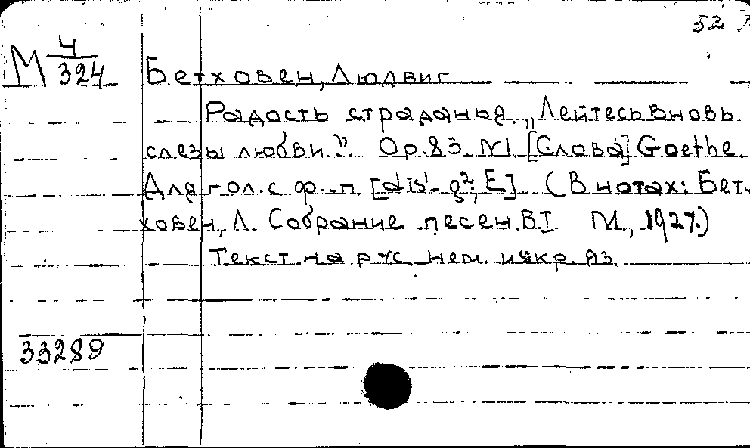 52
М 4/324 Бетховен, Людвиг
Радость страданья "Лейтесь вновь
слезы любви". Op. 83. №1 [Слова] Goethe.
Для гол. с ф.-п. [dis¹-g², E]. (В нотах: Бет-
ховен, Л. Собрание песен. В I М., 1927.)
Текст на рус. нем. и укр. яз.
33289